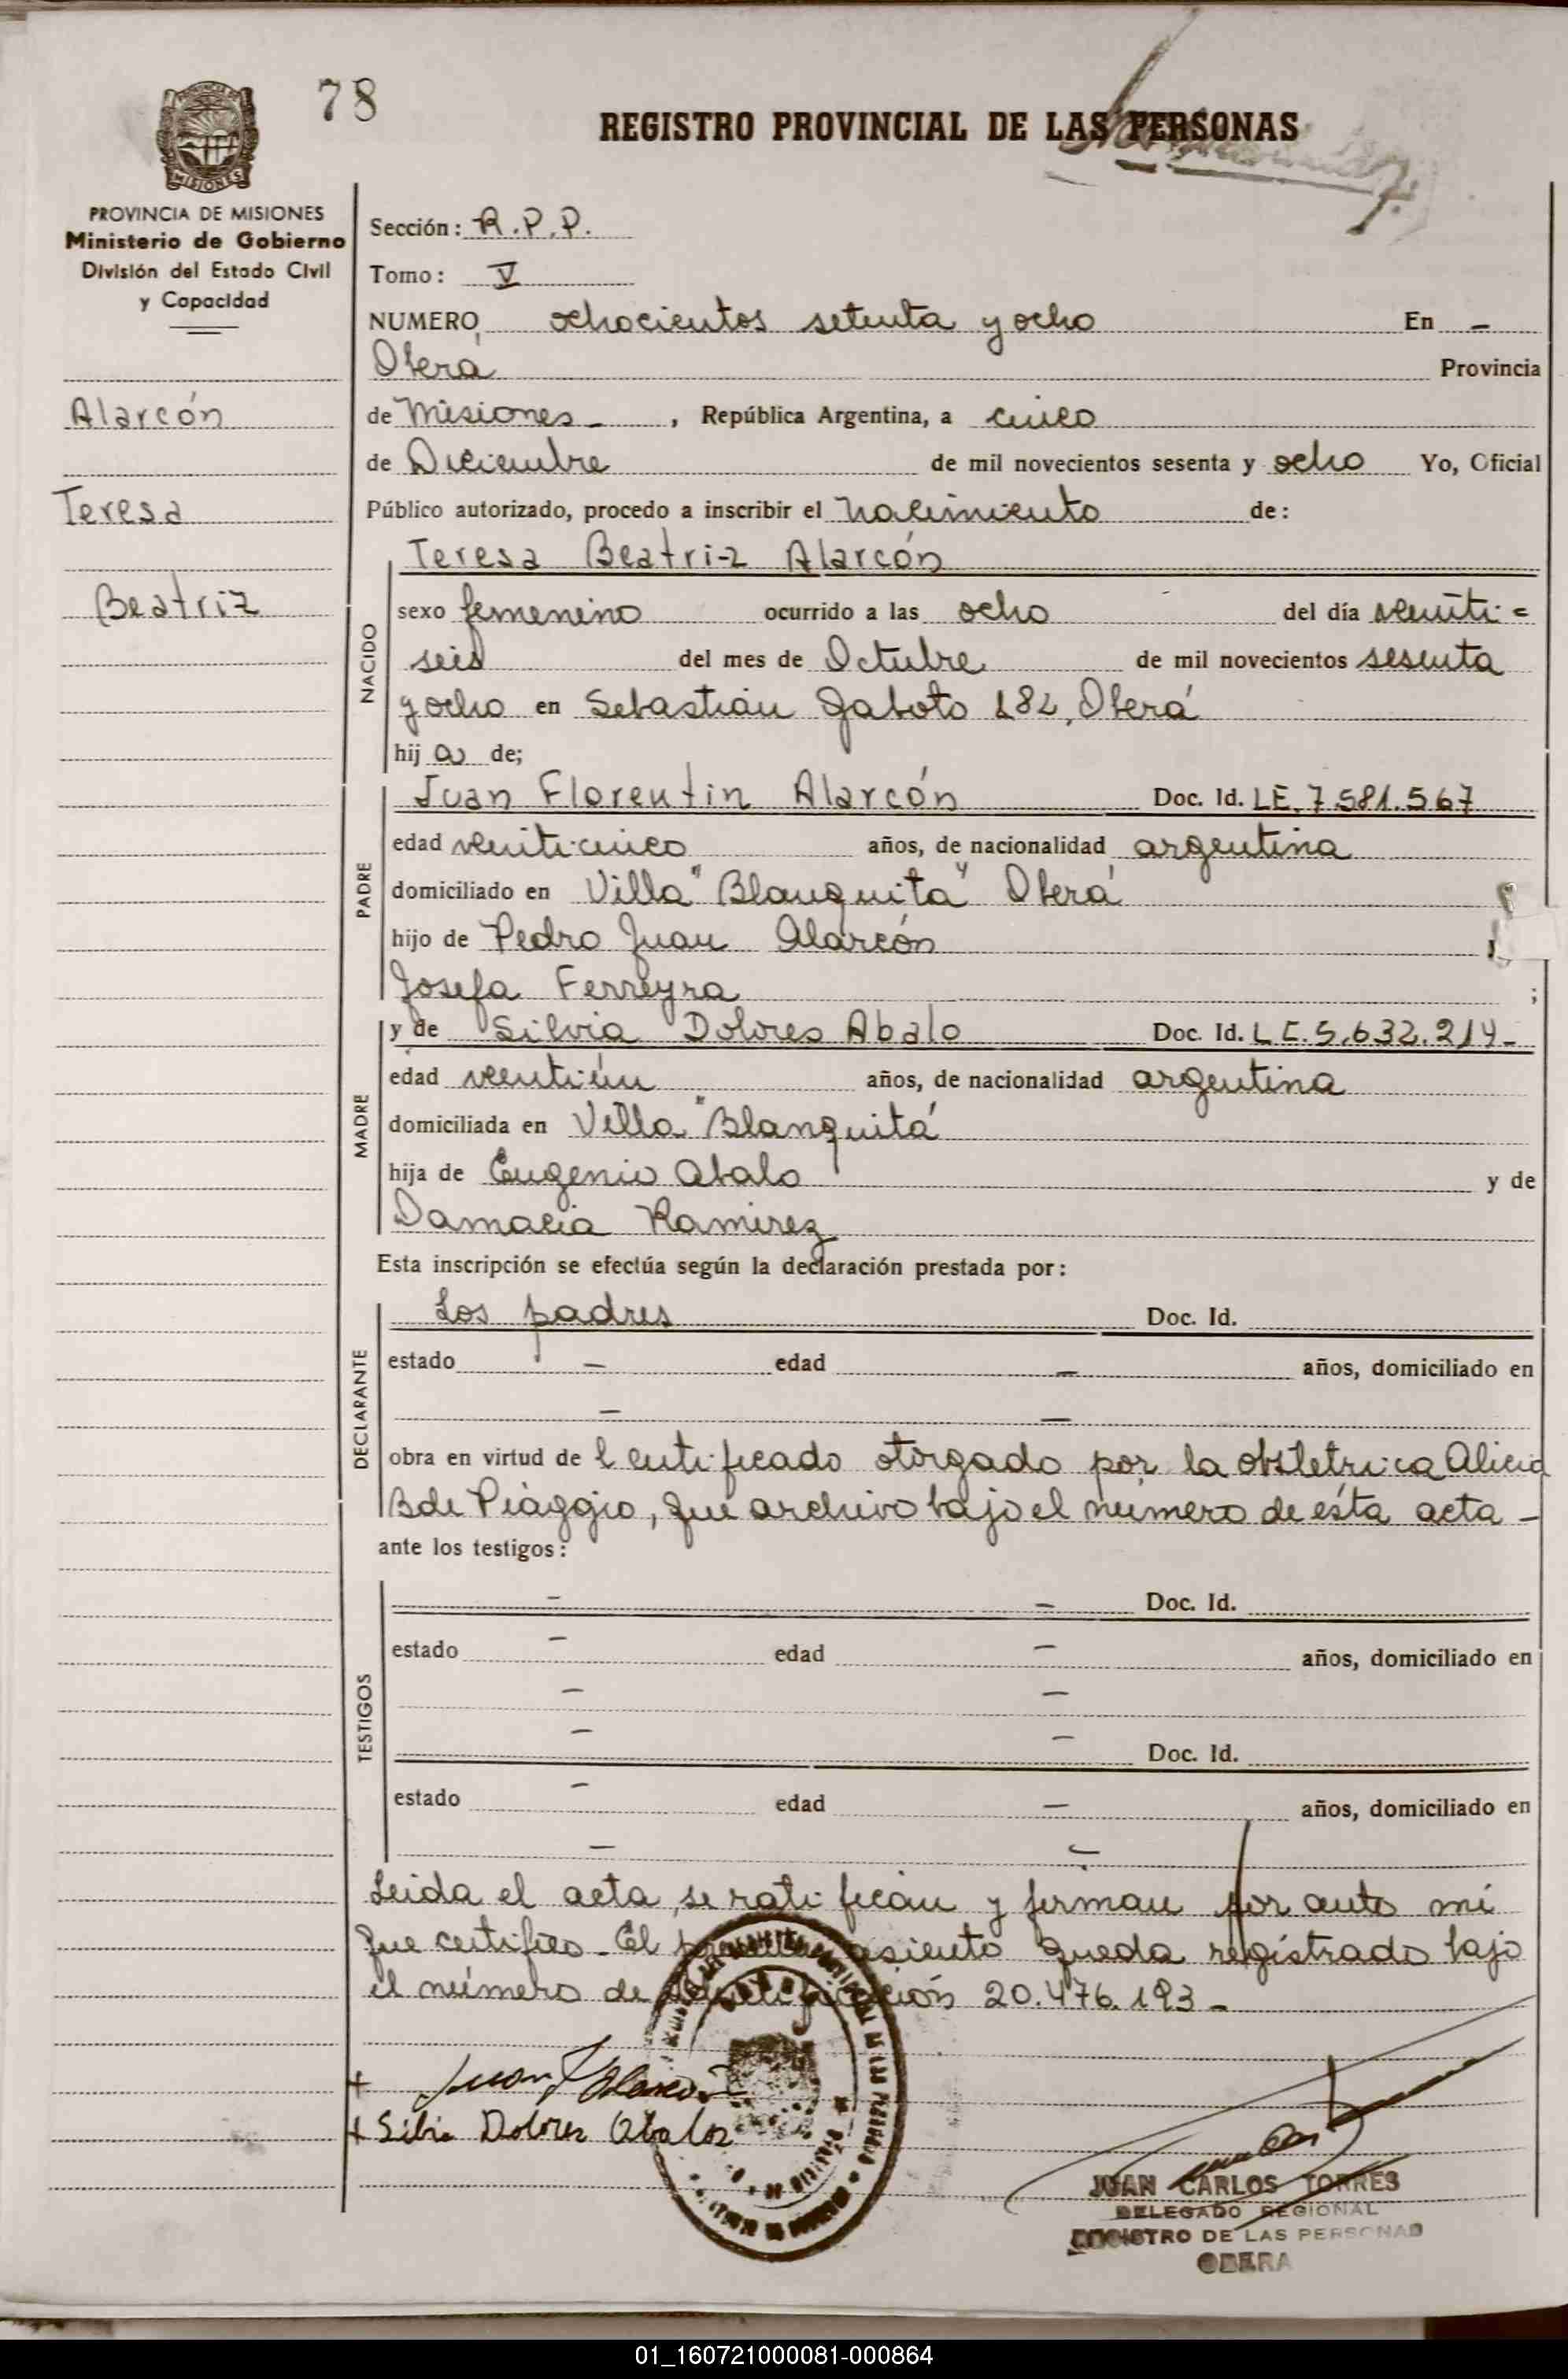 78
REGISTRO PROVINCIAL DE LAS PERSONAS
PROVINCIA DE MISIONES
Ministerio de Gobierno
División del Estado Civil
y Capacidad
Alarcón
Teresa
Beatriz
Sección: R.P.P.
Tomo: V
NUMERO ochocientos setenta y ocho En -
Oberá Provincia
de Misiones - , República Argentina, a cinco
de Diciembre de mil novecientos sesenta y ocho Yo, Oficial
Público autorizado, procedo a inscribir el nacimiento de:
Teresa Beatriz Alarcón
NACIDO
sexo femenino ocurrido a las ocho del día veinti=
seis del mes de Octubre de mil novecientos sesenta
y ocho en Sebastián Gaboto 182, Oberá
hij a de;
PADRE
Juan Florentin Alarcón Doc. Id. LE. 7.581.567
edad veinticinco años, de nacionalidad argentina
domiciliado en Villa "Blanquita" Oberá
hijo de Pedro Juan Alarcón
Josefa Ferreyra ;
MADRE
y de Silvia Dolores Abalo Doc. Id. L C. 5.632.214-
edad veintiún años, de nacionalidad argentina
domiciliada en Villa "Blanquita"
hija de Eugenio Abalo y de
Damacia Ramirez
Esta inscripción se efectúa según la declaración prestada por:
DECLARANTE
Los padres Doc. Id.
estado - edad - años, domiciliado en
- -
obra en virtud de certificado otorgado por la obstetrica Alicia
B de Piaggio, que archivo bajo el número de ésta acta -
ante los testigos:
TESTIGOS
- - Doc. Id.
estado - edad - años, domiciliado en
- -
- - Doc. Id.
estado - edad - años, domiciliado en
- -
Leida el acta, se ratifican y firman por ante mi
que certifico - El presente asiento queda registrado bajo
el número de identificación 20.476.193 -
+ Juan F Alarcón
+ Silvia Dolores Abalos
JUAN CARLOS TORRES
DELEGADO REGIONAL
REGISTRO DE LAS PERSONAS
OBERA
01_160721000081-000864